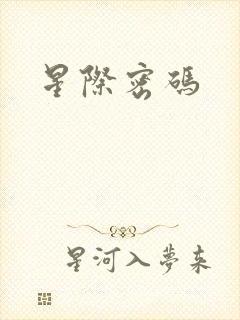 星際密碼
星河入夢來